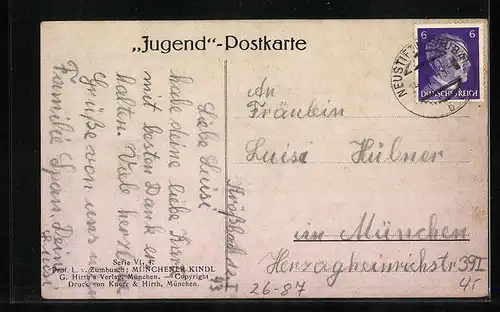 „Jugend“-Postkarte
6 6
DEUTSCHES REICH
NEUSTIFT
b
An
Fräulein
Luise Hübner
in München
Herzogheinrichstr 39 II
Liebe Luise
habe deine liebe Karte
mit besten Dank er-
halten. Viele herzl
Grüße von uns
Familie Span. Deine
Luise
Serie VI, 4.
Prof. L. v. Zumbusch: MÜNCHENER KINDL
G. Hirth's Verlag, München. — Copyright
Druck von Knorr & Hirth, München.
26-87